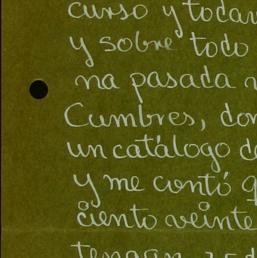 curso y todav
y sobre todo
na pasada
Cumbres, don
un catálogo de
y me contó q
ciento veinte
tengan